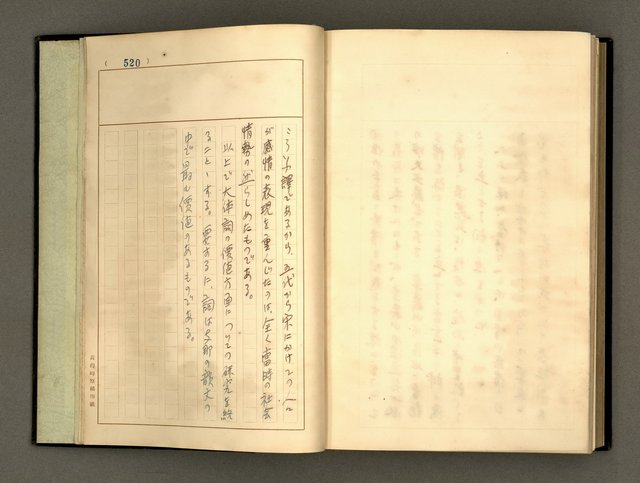 ( 520 )
いふ譯であるから、五代から宋にかけての
が感情の表現を重んじたのは、全く當時の社会
情勢の然らしめたものである。
以上で大体詞の價値方面についての研究を終
ることゝする。要するに、詞は支那の韻文の
中で最も價値のあるものである。